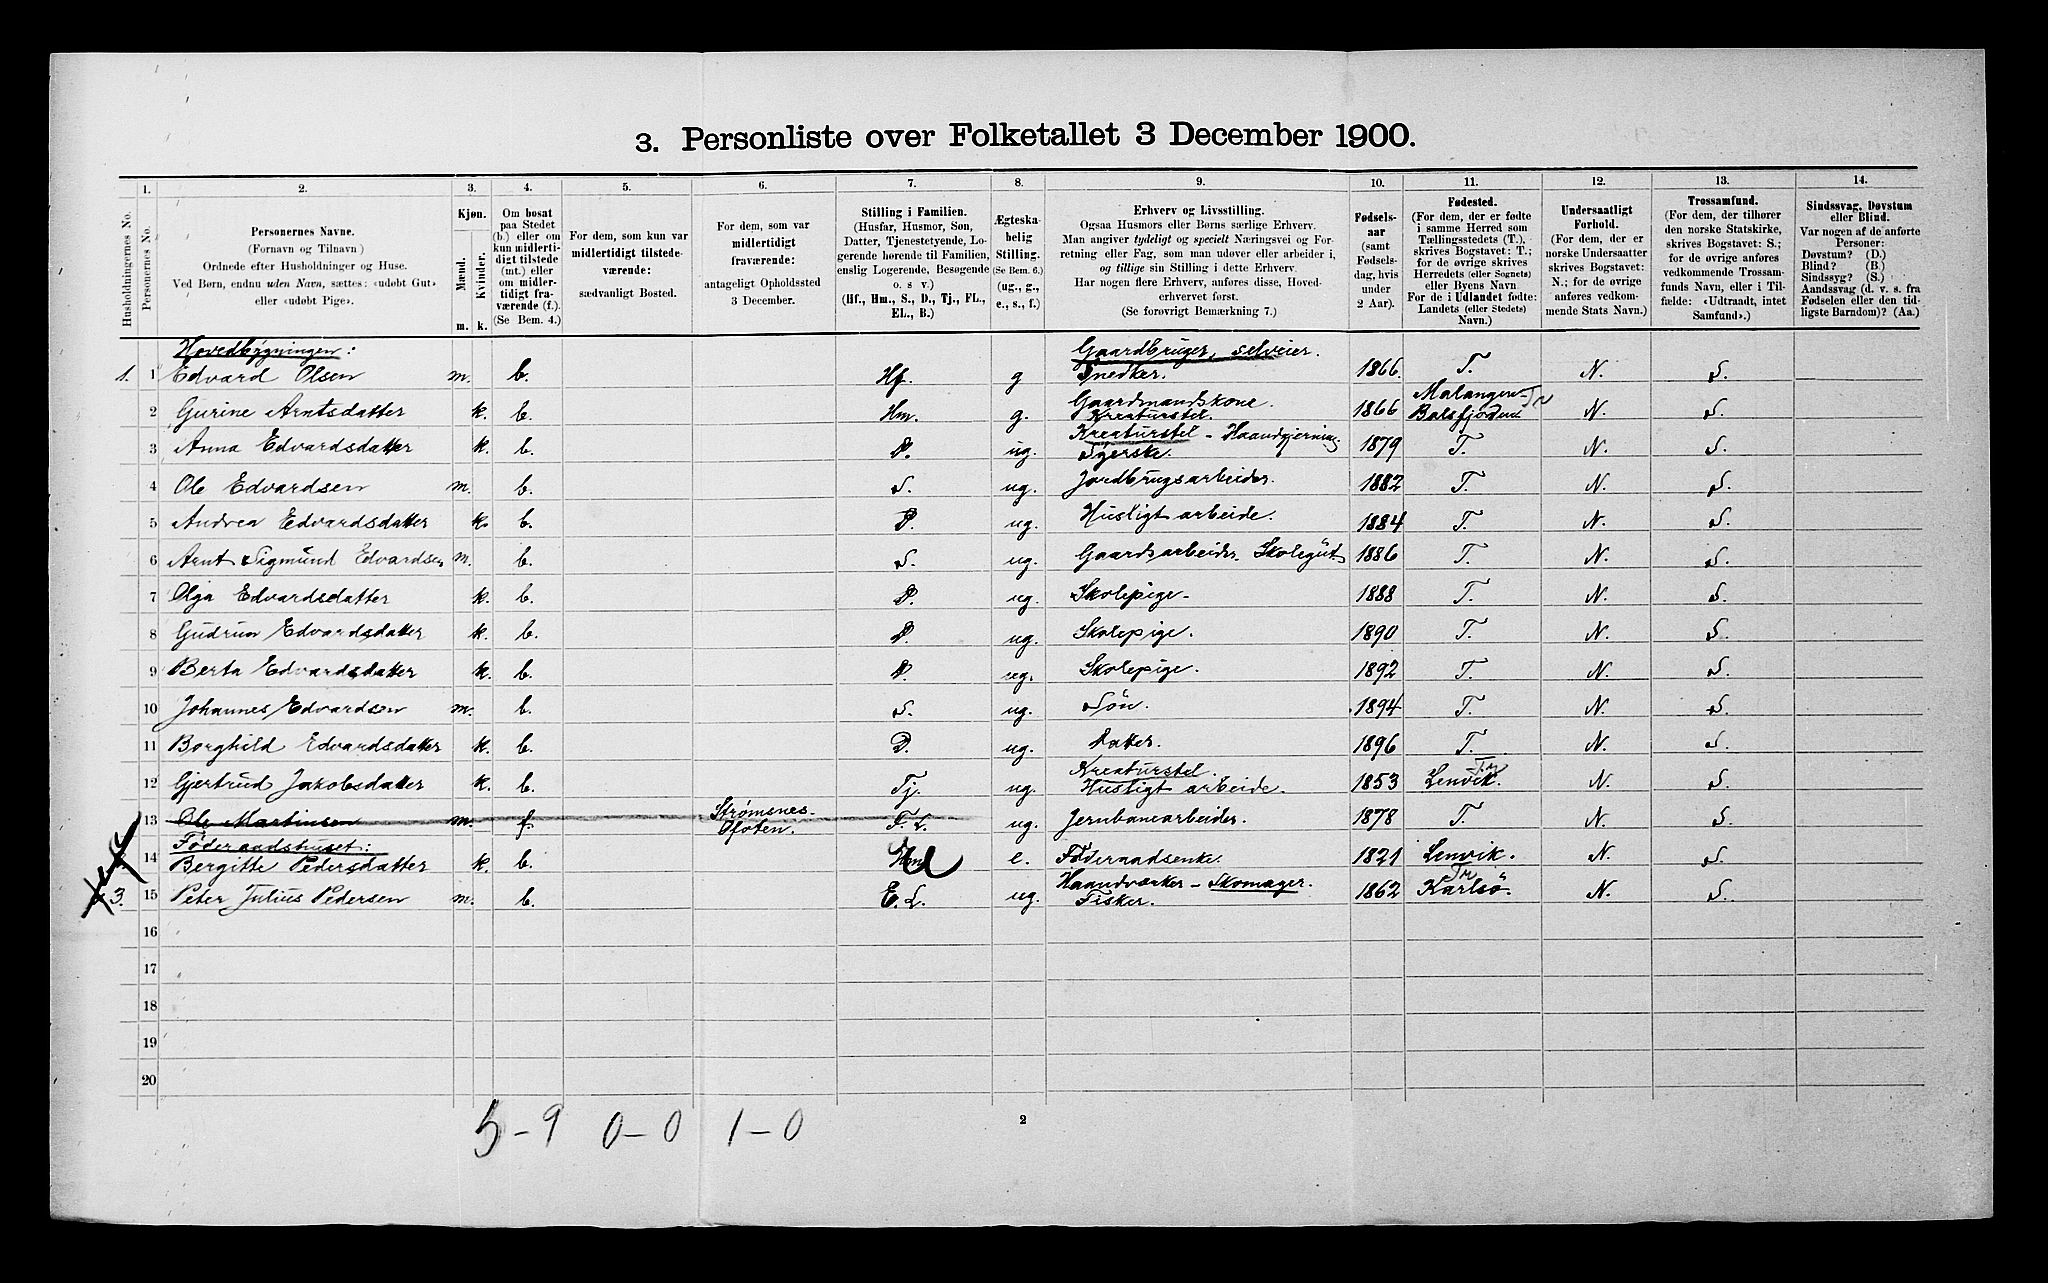 3. Personliste over Folketallet 3 December 1900.
Husholdningernes No.
1. Personernes No.
2. Personernes Navne. (Fornavn og Tilnavn) Ordnede efter Husholdninger og Huse. Ved Børn, endnu uden Navn, sættes: «udøbt Gut» eller «udøbt Pige».
3. Kjøn. Mænd. Kvinder. m. k.
4. Om bosat paa Stedet (b.) eller om kun midlertidigt tilstede (mt.) eller om midlertidigt fraværende (f.). (Se Bem. 4.)
5. For dem, som kun var midlertidigt tilstedeværende: sædvanligt Bosted.
6. For dem, som var midlertidigt fraværende: antageligt Opholdssted 3 December.
7. Stilling i Familien. (Husfar, Husmor, Søn, Datter, Tjenestetyende, Logerende hørende til Familien, enslig Logerende, Besøgende o. s v.) (Hf., Hm., S., D., Tj., FL., EL., B.)
8. Ægteskabelig Stilling. (Se Bem. 6.) (ug., g., e., s., f.)
9. Erhverv og Livsstilling. Ogsaa Husmors eller Børns særlige Erhverv. Man angiver tydeligt og specielt Næringsvei og Forretning eller Fag, som man udøver eller arbeider i, og tillige sin Stilling i dette Erhverv. Har nogen flere Erhverv, anføres disse, Hovederhvervet først. (Se forøvrigt Bemærkning 7.)
10. Fødselsaar (samt Fødselsdag, hvis under 2 Aar).
11. Fødested. (For dem, der er fødte i samme Herred som Tællingsstedets (T.), skrives Bogstavet: T.; for de øvrige skrives Herredets (eller Sognets) eller Byens Navn. For de i Udlandet fødte: Landets (eller Stedets) Navn.)
12. Undersaatligt Forhold. (For dem, der er norske Undersaatter skrives Bogstavet: N.; for de øvrige anføres vedkommende Stats Navn.)
13. Trossamfund. (For dem, der tilhører den norske Statskirke, skrives Bogstavet: S.; for de øvrige anføres vedkommende Trossamfunds Navn, eller i Tilfælde: «Udtraadt, intet Samfund».)
14. Sindssvag, Døvstum eller Blind. Var nogen af de anførte Personer: Døvstum? (D.) Blind? (B.) Sindssyg? (S.) Aandssvag (d. v. s. fra Fødselen eller den tidligste Barndom)? (Aa.)
Hovedbygningen: Gaardbruger, selveier.
1. 1 Edvard Olsen m. b. Hf. g Snedker. 1866 T. N. S.
2 Gurine Arntsdatter k. b. Hm. g. Gaardmandskone. Kreaturstel. 1866 Malangen Balsfjorden Tr N. S.
3 Anna Edvardsdatter k. b. D. ug. Kreaturstel - Haandgjerning Syerske. 1879 T. N. S.
4 Ole Edvardsen m. b. S. ug. Jordbrugsarbeider. 1882 T. N. S.
5 Andrea Edvardsdatter k. b. D. ug. Husligt arbeide. 1884 T. N. S.
6 Arnt Sigmund Edvardsen m. b. S. ug. Gaardsarbeider - Skolegut 1886 T. N. S.
7 Olga Edvardsdatter k. b. D. ug. Skolepige - 1888 T. N. S.
8 Gudrun Edvardsdatter k. b. D. ug. Skolepige. 1890 T. N. S.
9 Berta Edvardsdatter k. b. D. ug. Skolepige. 1892 T. N. S.
10 Johannes Edvardsen m. b. S. ug. Søn. 1894 T. N. S.
11 Borghild Edvardsdatter k. b. D. ug. Datter. 1896 T. N. S.
12 Gjertrud Jakobsdatter k. b. Tj. ug. Kreaturstel. Husligt arbeide. 1853 Lenvik. Tr N. S.
13 Ole Martinsen m. f. Strømsnes - Ofoten. F.L. ug. Jernbanearbeider. 1878 T. N. S.
Föderaadshuset:
14 Bergitte Pedersdatter k. b. Hm e. Föderaadsenke. 1821 Lenvik. Tr N. S.
3. 15 Peter Julius Pedersen m. b. E.L. ug. Haandværker - Skomager. Fisker. 1862 Karlsö. N. S.
16
17
18
19
20
5-9 0-0 1-0
2